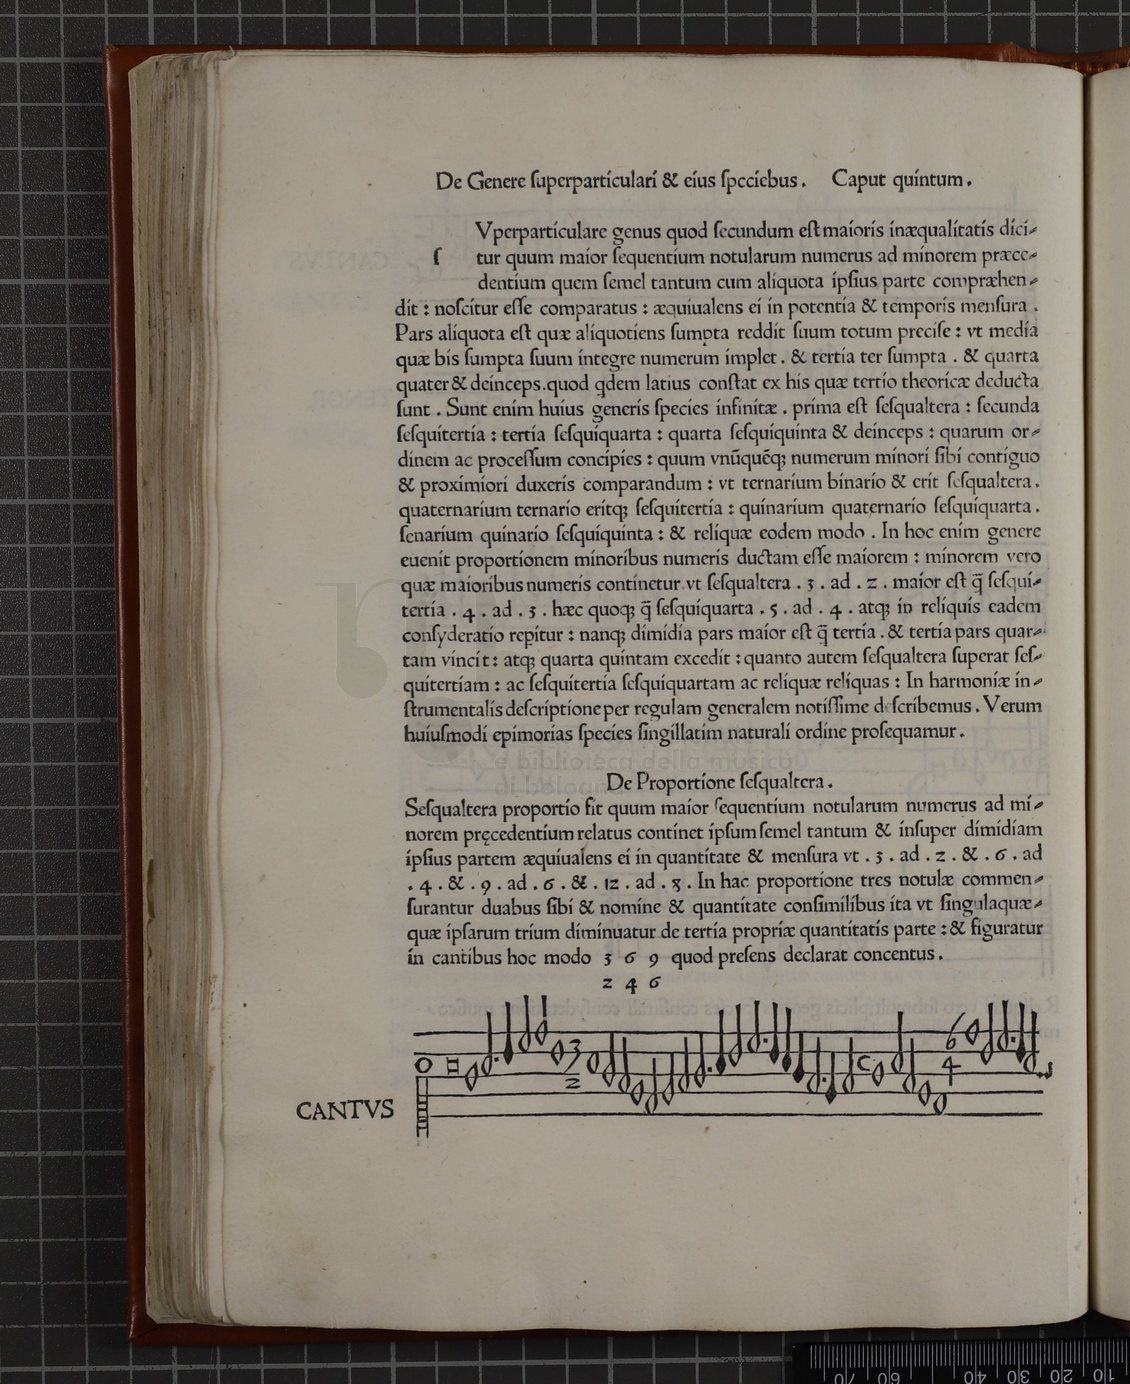 De Genere ſuperparticulari & eius ſpeciebus. Caput quintum.
Vperparticulare genus quod ſecundum eſt maioris inæqualitatis dici⸗
ſ tur quum maior ſequentium notularum numerus ad minorem præce⸗
dentium quem ſemel tantum cum aliquota ipſius parte compræhen⸗
dit : noſcitur eſſe comparatus : æquiualens ei in potentia & temporis menſura .
Pars aliquota eſt quæ aliquotiens ſumpta reddit ſuum totum preciſe : vt media
quæ bis ſumpta ſuum integre numerum implet . & tertia ter ſumpta . & quarta
quater & deinceps.quod qdem latius conſtat ex his quæ tertio theoricæ deducta
ſunt . Sunt enim huius generis ſpecies infinitæ . prima eſt ſeſqualtera : ſecunda
ſeſquitertia : tertia ſeſquiquarta : quarta ſeſquiquinta & deinceps : quarum or⸗
dinem ac proceſſum concipies : quum vnūquēq; numerum minori ſibi contiguo
& proximiori duxeris comparandum : vt ternarium binario & erit ſeſqualtera.
quaternarium ternario eritq; ſeſquitertia : quinarium quaternario ſeſquiquarta .
ſenarium quinario ſeſquiquinta : & reliquæ eodem modo . In hoc enim genere
euenit proportionem minoribus numeris ductam eſſe maiorem : minorem vero
quæ maioribus numeris continetur.vt ſeſqualtera . 3 . ad . 2 . maior eſt q̄ ſeſqui⸗
tertia . 4 . ad . 3 . hæc quoq; q̄ ſeſquiquarta . 5 . ad . 4 . atq; in reliquis eadem
conſyderatio repitur : nanq; dimidia pars maior eſt q̄ tertia . & tertia pars quar⸗
tam vincit : atq; quarta quintam excedit : quanto autem ſeſqualtera ſuperat ſeſ⸗
quitertiam : ac ſeſquitertia ſeſquiquartam ac reliquæ reliquas : In harmoniæ in⸗
ſtrumentalis deſcriptione per regulam generalem notiſſime deſcribemus . Verum
huiuſmodi epimorias ſpecies ſingillatim naturali ordine proſequamur .
e biblioteca della musica
di bologna
De Proportione ſeſqualtera .
Seſqualtera proportio fit quum maior ſequentium notularum numerus ad mi⸗
norem pręcedentium relatus continet ipſum ſemel tantum & inſuper dimidiam
ipſius partem æquiualens ei in quantitate & menſura vt . 3 . ad . 2 . & . 6 . ad
. 4 . & . 9 . ad . 6 . & . 12 . ad . 8 . In hac proportione tres notulæ commen⸗
ſurantur duabus ſibi & nomine & quantitate conſimilibus ita vt ſingulaquæ⸗
quæ ipſarum trium diminuatur de tertia propriæ quantitatis parte : & figuratur
in cantibus hoc modo 3 6 9 quod preſens declarat concentus .
2 4 6
3 6
2 4
CANTVS
70 60 40 30 20 10